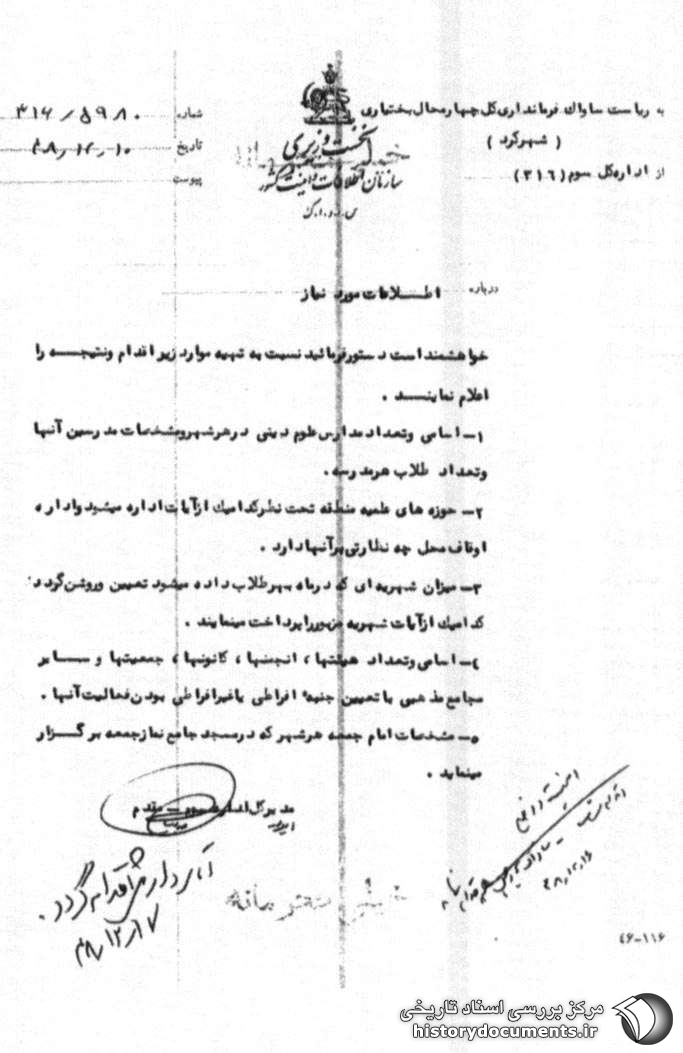 به ریاست ساواک فرمانداری کل چهارمحال بختیاری
( شهرکرد )
از اداره کل سوم (۳۱۶)
نخست وزیری
سازمان اطلاعات و امنیت کشور
س.ا.و.ا.ک
شماره ۳۱۶/۵۹۸۰
تاریخ ۴۸/۱۲/۱۰
پیوست
درباره اطلاعات مورد نیاز
خواهشمند است دستور فرمائید نسبت به تهیه موارد زیر اقدام و نتیجه را
اعلام نمایند .
۱- اسامی وتعداد مدارس علوم دینی درهرشهرومشخصات مدرسین آنها
وتعداد طلاب هرمدرسه .
۲- حوزه های علمیه منطقه تحت نظرکدامیک ازآیات اداره میشود واداره
اوقاف محل چه نظارتی برآنها دارد .
۳- میزان شهریه ای که درماه بهرطلاب داده میشود تعیین وروشن گردد
کدامیک ازآیات شهریه مزبوررا پرداخت مینمایند .
٤- اسامی وتعداد هیئتها ، انجمنها ، کانونها ، جمعیتها و سایر
مجامع مذهبی با تعیین جنبه افراطی یاغیرافراطی بودن فعالیت آنها .
۵- مشخصات امام جمعه هرشهر که درمسجد جامع نمازجمعه برگزار
مینماید .
مدیرکل اداره سوم - مقدم
خیلی محرمانه
اقدام گردد .
۴۸/۱۲/۱۷
۴۸/۱۲/۱۶
٤۶-۱۱۶
مرکز بررسی اسناد تاریخی
historydocuments.ir